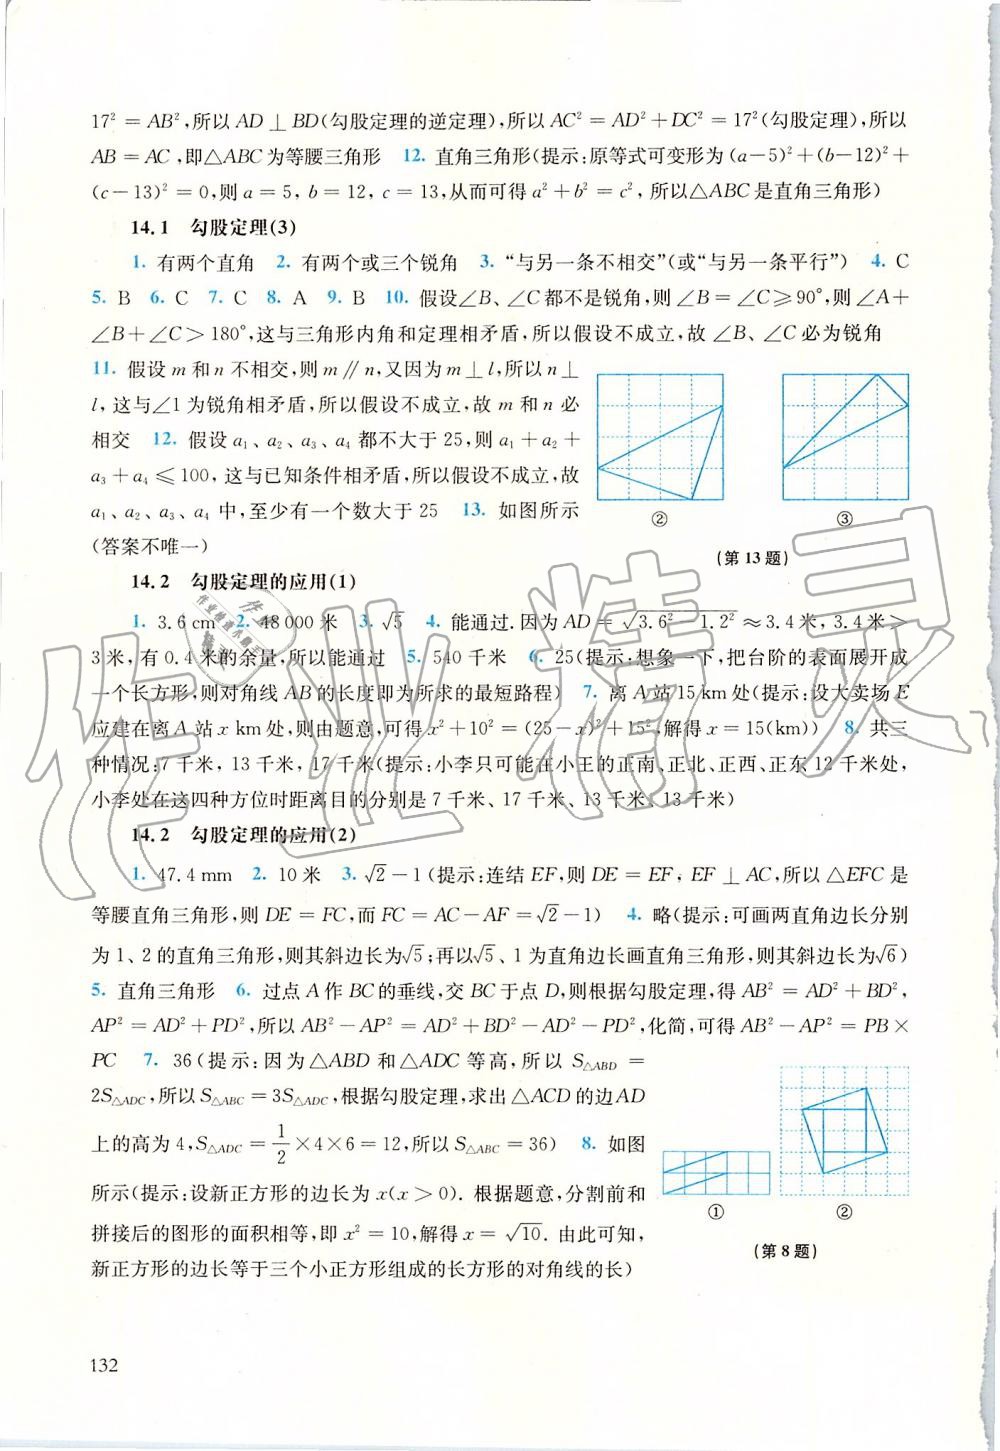 17² = AB²,所以 AD ⊥ BD(勾股定理的逆定理),所以 AC² = AD² + DC² = 17²(勾股定理),所以
AB = AC,即△ABC为等腰三角形 12. 直角三角形(提示:原等式可变形为(a-5)²+(b-12)²+
(c-13)² = 0,则 a = 5, b = 12, c = 13,从而可得 a² + b² = c², 所以△ABC是直角三角形)
14.1 勾股定理(3)
1. 有两个直角 2. 有两个或三个锐角 3. “与另一条不相交”(或“与另一条平行”) 4. C
5. B 6. C 7. C 8. A 9. B 10. 假设∠B、∠C都不是锐角,则∠B=∠C⩾90°,则∠A+
∠B+∠C>180°,这与三角形内角和定理相矛盾,所以假设不成立,故 ∠B、∠C必为锐角
11. 假设 m 和 n 不相交,则 m // n,又因为 m ⊥ l,所以 n ⊥
l, 这与∠1为锐角相矛盾,所以假设不成立,故 m 和 n 必
相交 12. 假设 a₁、a₂、a₃、a₄ 都不大于 25,则 a₁ + a₂ +
a₃ + a₄ ⩽ 100, 这与已知条件相矛盾,所以假设不成立,故
a₁、a₂、a₃、a₄ 中,至少有一个数大于 25 13. 如图所示
(答案不唯一)
② ③
(第 13 题)
14.2 勾股定理的应用(1)
1. 3.6 cm 2. 48 000 米 3. √5 4. 能通过. 因为 AD = √3.6² 1.2² ≈ 3.4 米, 3.4 米 >
3 米, 有 0.4 米的余量,所以能通过 5. 540 千米 6. 25(提示:想象一下,把台阶的表面展开成
一个长方形,则对角线 AB 的长度即为所求的最短路程) 7. 离 A 站 15 km 处(提示:设大卖场 E
应建在离 A 站 x km 处,则由题意,可得 x² + 10² = (25-x)² + 15²,解得 x = 15(km)) 8. 共三
种情况:7 千米, 13 千米, 17 千米(提示:小李只可能在小王的正南、正北、正西、正东 12 千米处,
小李处在这四种方位时距离目的分别是 7 千米、17 千米、13 千米、13 千米)
14.2 勾股定理的应用(2)
1. 47.4 mm 2. 10 米 3. √2 - 1 (提示:连结 EF,则 DE = EF, EF ⊥ AC,所以 △EFC 是
等腰直角三角形,则 DE = FC,而 FC = AC - AF = √2 - 1) 4. 略(提示:可画两直角边长分别
为 1、2 的直角三角形,则其斜边长为√5;再以√5、1 为直角边长画直角三角形,则其斜边长为√6)
5. 直角三角形 6. 过点 A 作 BC 的垂线,交 BC 于点 D,则根据勾股定理,得 AB² = AD² + BD²,
AP² = AD² + PD²,所以 AB² - AP² = AD² + BD² - AD² - PD²,化简,可得 AB² - AP² = PB ×
PC 7. 36 (提示:因为 △ABD 和 △ADC 等高,所以 S△ABD =
2S△ADC,所以 S△ABC = 3S△ADC,根据勾股定理,求出 △ACD 的边 AD
上的高为 4, S△ADC = 1/2 × 4 × 6 = 12,所以 S△ABC = 36) 8. 如图
所示(提示:设新正方形的边长为 x(x > 0). 根据题意,分割前和
拼接后的图形的面积相等,即 x² = 10,解得 x = √10. 由此可知,
新正方形的边长等于三个小正方形组成的长方形的对角线的长)
① ②
(第 8 题)
132
作业精灵